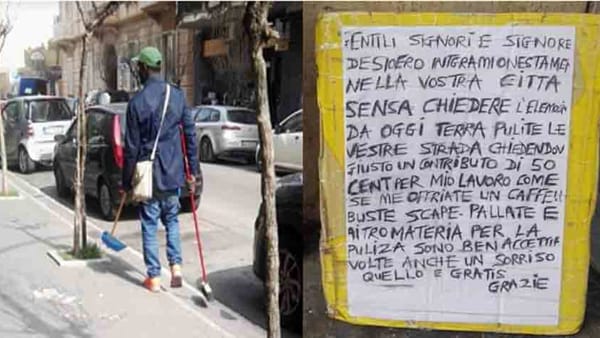 GENTILI SIGNORI E SIGNORE
DESIDERO INTEGRARMI ONESTAMEN
NELLA VOSTRA CITTA
SENSA CHIEDERE L'ELEMOSI
DA OGGI TERRA PULITE LE
VESTRE STRADA CHIEDENDOV
GIUSTO UN CONTRIBUTO DI 50
CENT PER MIO LAVORO COME
SE ME OFFRIATE UN CAFFE!!
BUSTE SCAPE-PALLATE E
AITRO MATERIA PER LA
PULIZA SONO BEN ACCETTA
VOLTE ANCHE UN SORRISO
QUELLO E GRATIS
GRAZIE